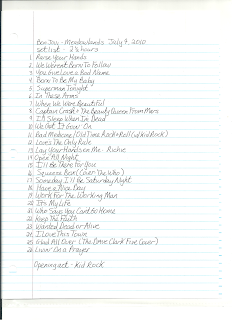 Bon Jovi - Meadowlands July 9, 2010
set list - 2 1/2 hours
1. Raise Your Hands
2. We Weren't Born To Follow
3. You Give Love a Bad Name
4. Born To Be My Baby
5. Superman Tonight
6. In These Arms
7. When We Were Beautiful
8. Captain Crash & The Beauty Queen From Mars
9. I'll Sleep When I'm Dead
10. We Got It Goin' On
11. Bad Medicine/Old Time Rock & Roll (w/Kid Rock)
12. Love's The Only Rule
13. Lay Your Hands on Me - Richie
14. Open All Night
15. I'll Be There for You
16. Squeeze Box (Cover The Who)
17. Someday I'll Be Saturday Night
18. Have a Nice Day
19. Work For The Working Man
20. It's My Life
21. Who Says You Can't Go Home
22. Keep The Faith
23. Wanted Dead or Alive
24. I Love This Town
25. Glad All Over (The Dave Clark Five Cover)
26. Livin' On a Prayer
Opening act - Kid Rock